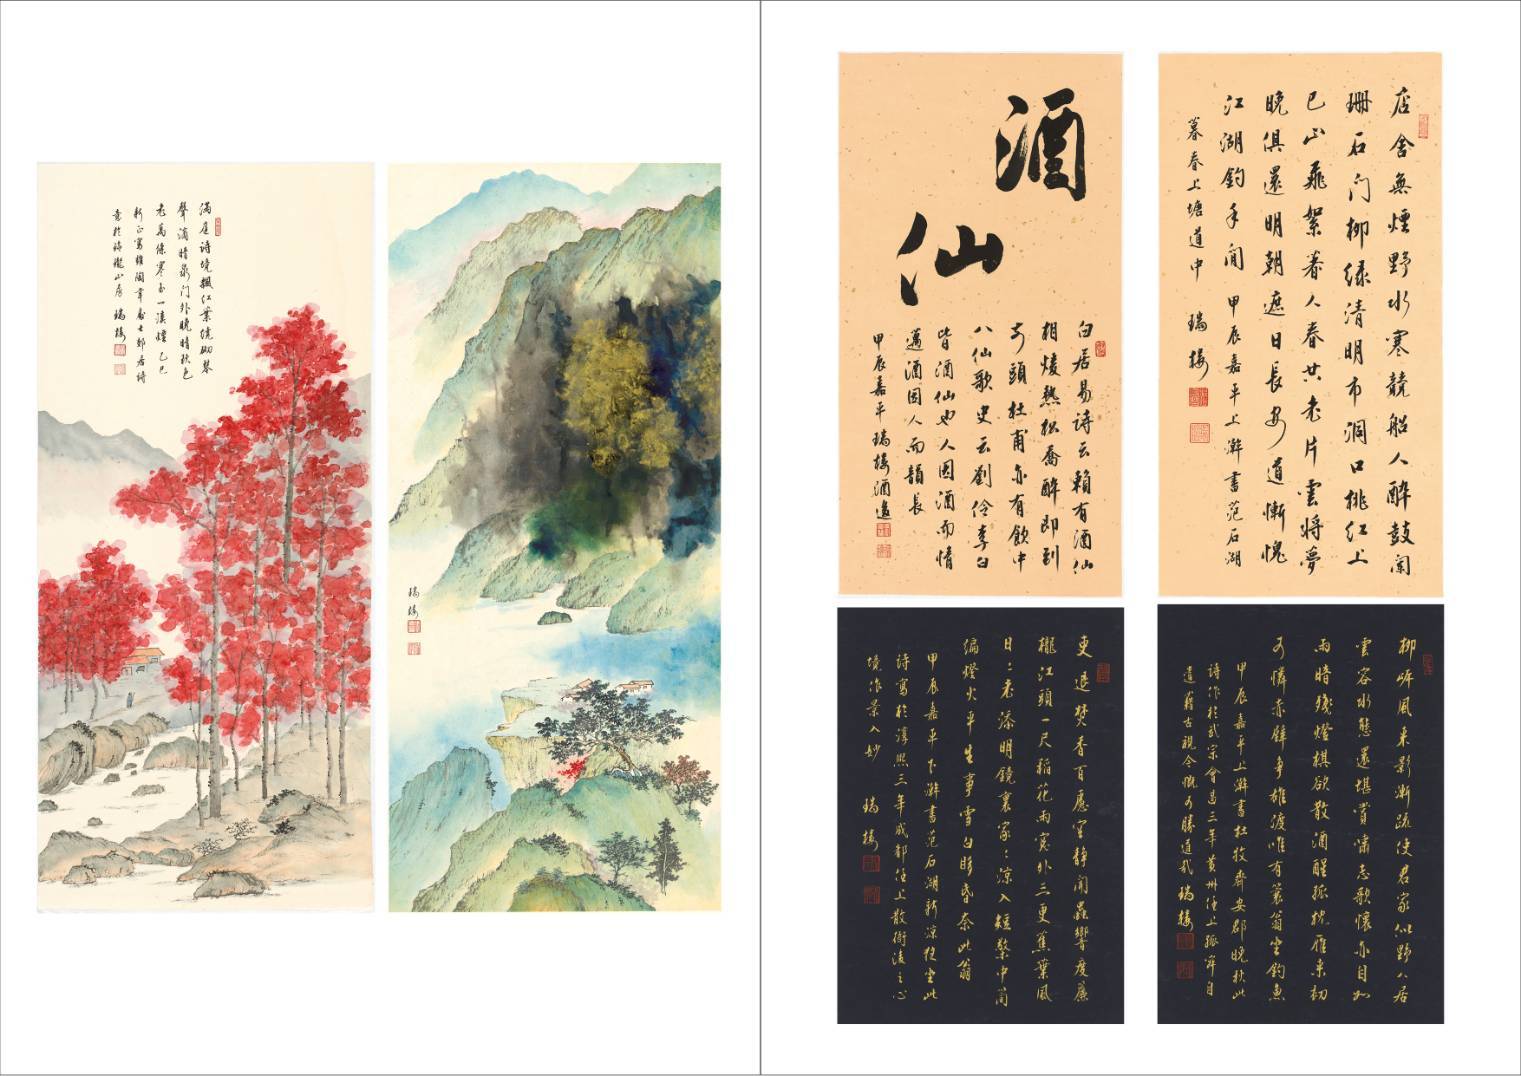 滿庭詩境飄紅葉繞砌琴
聲滴暗泉門外晚晴秋色
老萬條寒玉一溪煙 乙巳
新正寫雍陶韋處士郊居詩
意於瓏山房 瑞樓
瑞樓
酒仙
白居易詩云賴有酒仙
相煖熱松喬醉即到
前頭杜甫亦有飲中
八仙歌史云劉伶李白
皆酒仙也人因酒而情
邁酒因人而韻長
甲辰嘉平瑞樓酒邊
店舍無煙野水寒競船人醉鼓闌
珊石門柳綠清明市洞口桃紅上
巳山飛絮著人春共老片雲將夢
晚俱還明朝遮日長安道慚愧
江湖釣手閑 甲辰嘉平上澣書范石湖
暮春上塘道中 瑞樓
吏退焚香百慮空靜聞蟲響度簾
櫳江頭一尺稻花雨窗外三更蕉葉風
日日老添明鏡裏家家涼入短檠中簡
編燈火平生事雪白眵昏奈此翁
甲辰嘉平下澣書范石湖新涼夜坐此
詩寫於淳熙三年成都任上散衙後之心
境作景入妙 瑞樓
柳岸風來影漸疏使君家似野人居
雲容水態還堪賞嘯志歌懷亦自如
雨暗殘燈棋欲散酒醒孤枕雁來初
可憐赤壁爭雄渡唯有蓑翁坐釣魚
甲辰嘉平上澣書杜牧齊安郡晚秋此
詩作於武宗會昌三年黃州任上孤寂自
遣藉古視今慨可勝道哉 瑞樓